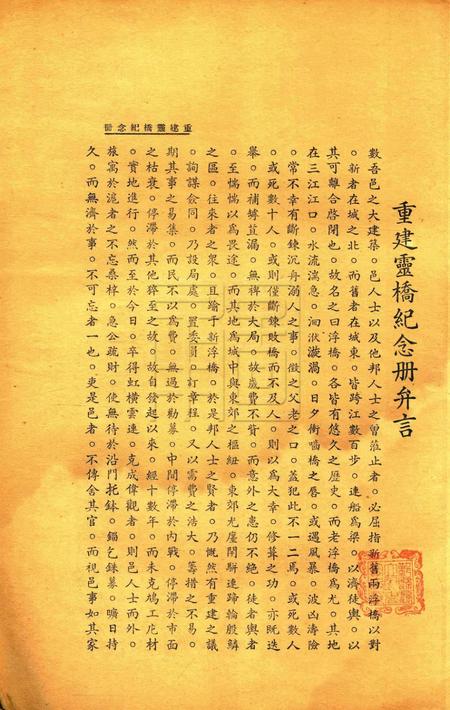 重建靈橋紀念册弁言
數吾邑之大建築。邑人士以及他邦人士之曾蒞止者。必屈指新舊兩浮橋以對
。新者在城之北。而舊者在城東。皆跨江數百步。連船爲梁。以濟徒輿。以
其可離合啓閉也。故名之曰浮橋。各皆有悠久之歷史。而老浮橋爲尤。其地
在三江江口。水流湍急。洄洑漩渦。日夕衝嚙橋之唇。或遇風暴。波凶濤險
。常不幸有斷鍊沉舟溺人之事。徵之父老之口。蓋犯此不一二焉。或死數人
。或死數十人。或則僅斷鍊敗橋而不及人。則以爲大幸。修葺之功。亦旣迭
舉。而補罅苴漏。無裨於大局。故歲費不貲。而意外之患仍不絶。徒者輿者
。至惴惴以爲畏途。而其地爲城中與東郊之樞紐。東郊尤廛閈駢連蹄輪殷鱗
之區。往來者之衆。且踰于新浮橋。於是邦人士之賢者。乃慨然有重建之議
。詢謀僉同。乃設局處。置委員。訂章程。又以需費之浩大。籌措之不易。
期其事之易集。而民不以爲費。無過於勸募。中間停滯於內戰。停滯於市面
之枯衰。停滯於其他猝至之故。故自發起以來。經十數年。而未克鳩工庀材
。實地進行。然而至於今日。卒得虹橫雲連。克成偉觀者。則邑人士而外。
旅寓於滬者之不忘桑梓。急公疏財。使無待於沿門托鉢。錙乞銖募。曠日持
久。而無濟於事。不可忘者一也。吏是邑者。不傳舍其官。而視邑事如其家
重建靈橋紀念冊